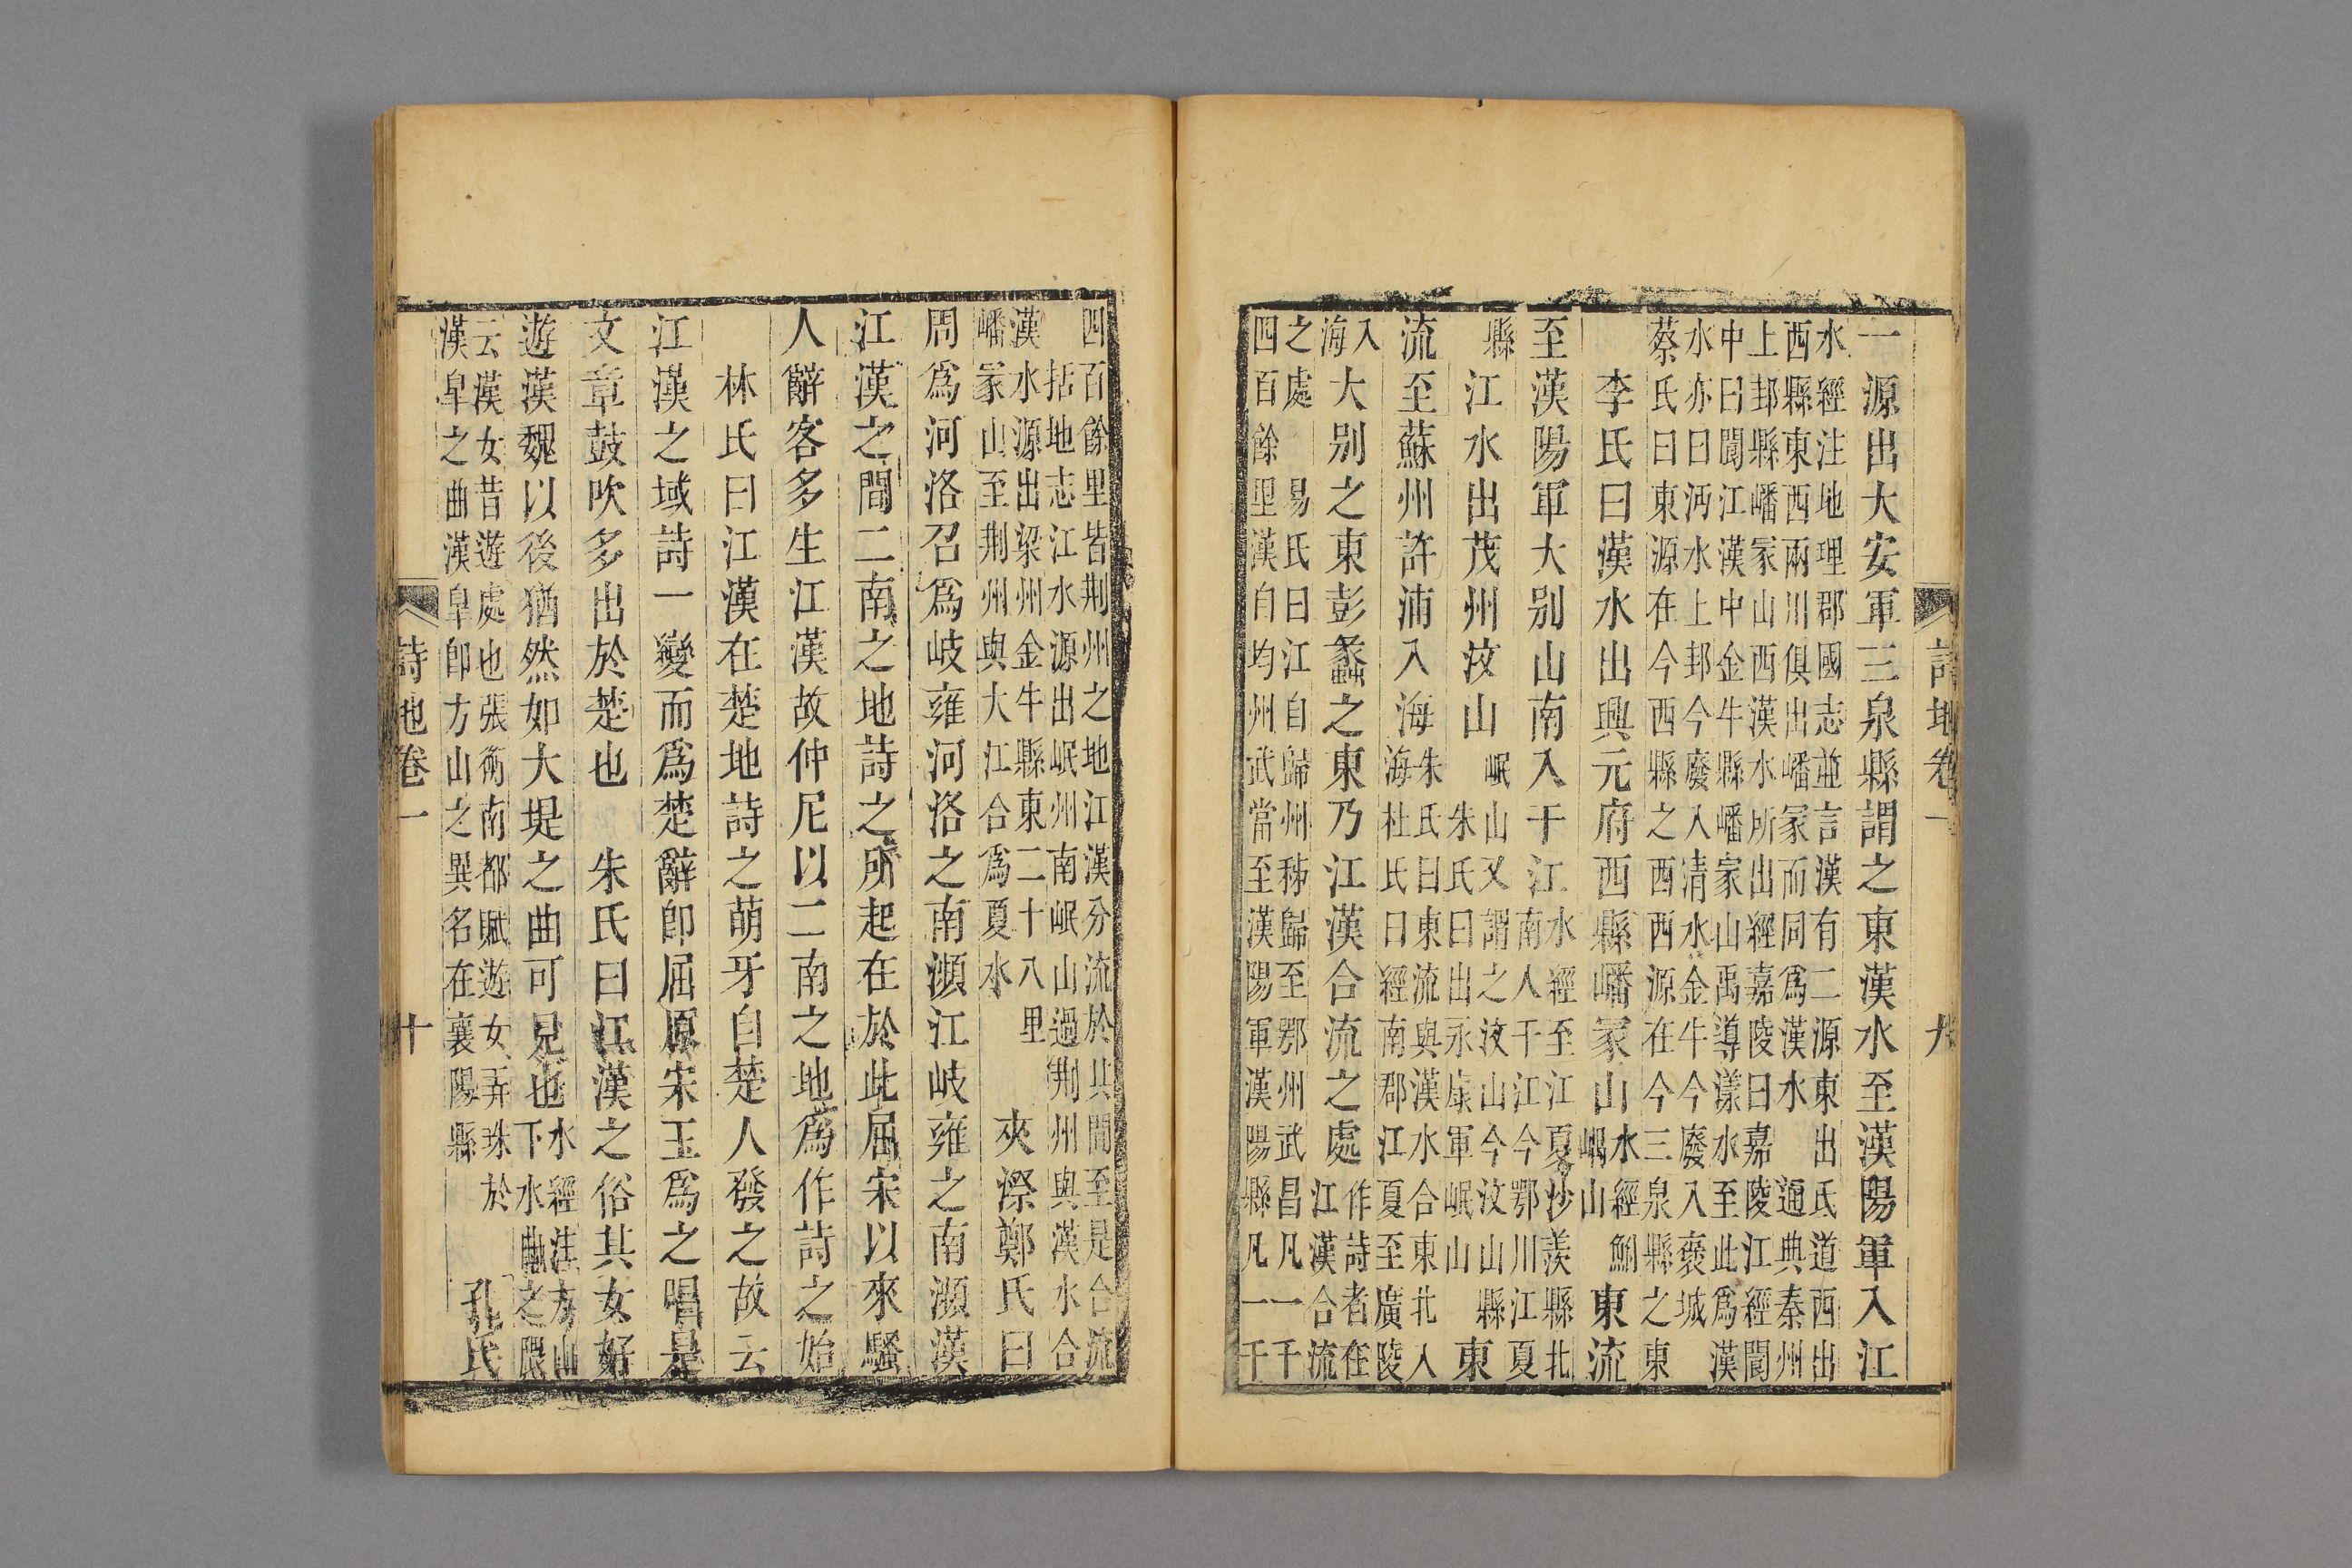 詩地卷一 九
一源出大安軍三泉縣謂之東漢水至漢陽軍入江
水經注地理郡國志並言漢有二源東出氐道西出
西縣東西兩川俱出嶓冢而同爲漢水 通典秦州
上邽縣嶓冢山西漢水所出經嘉陵曰嘉陵江經閬
中曰閬江漢中金牛縣嶓冢山禹導漾水至此爲漢
水亦曰沔水上邽今廢入清水金牛今廢入褒城
蔡氏曰東源在今西縣之西西源在今三泉縣之東
李氏曰漢水出興元府西縣嶓冢山水經山鮦東流
至漢陽軍大別山南入于江水經至江夏沙羡縣北南人于江今鄂川江夏
縣 江水出茂州汶山岷山又謂之汶山今汶山縣朱氏曰出永康軍岷山東
流至蘇州許浦入海朱氏曰東流與漢水合東北入海杜氏曰經南郡江夏至廣陵
入海大别之東彭蠡之東乃江漢合流之處作詩者在江漢合流
之處 易氏曰江自歸州秭歸至鄂州武昌凡一千
四百餘里漢自均州武當至漢陽軍漢陽縣凡一千
四百餘里皆荆州之地江漢分流於其間至是合流
括地志江水源出岷州南岷山過荆州與漢水合
漢水源出梁州金牛縣東二十八里
嶓冢山至荆州與大江合爲夏水 夾漈鄭氏曰
周爲河洛召爲岐雍河洛之南瀕江岐雍之南瀕漢
江漢之間二南之地詩之所起在於此屈宋以來騷
人辭客多生江漢故仲尼以二南之地爲作詩之始
林氏曰江漢在楚地詩之萌牙自楚人發之故云
江漢之域詩一變而爲楚辭卽屈原宋玉爲之唱是
文章鼓吹多出於楚也 朱氏曰江漢之俗其女好
遊漢魏以後猶然如大堤之曲可見也水經注方山下水曲之隈
云漢女昔遊處也張衡南都賦遊女弄珠於
漢皐之曲漢皐卽方山之異名在襄陽縣 孔氏
詩地卷一 十